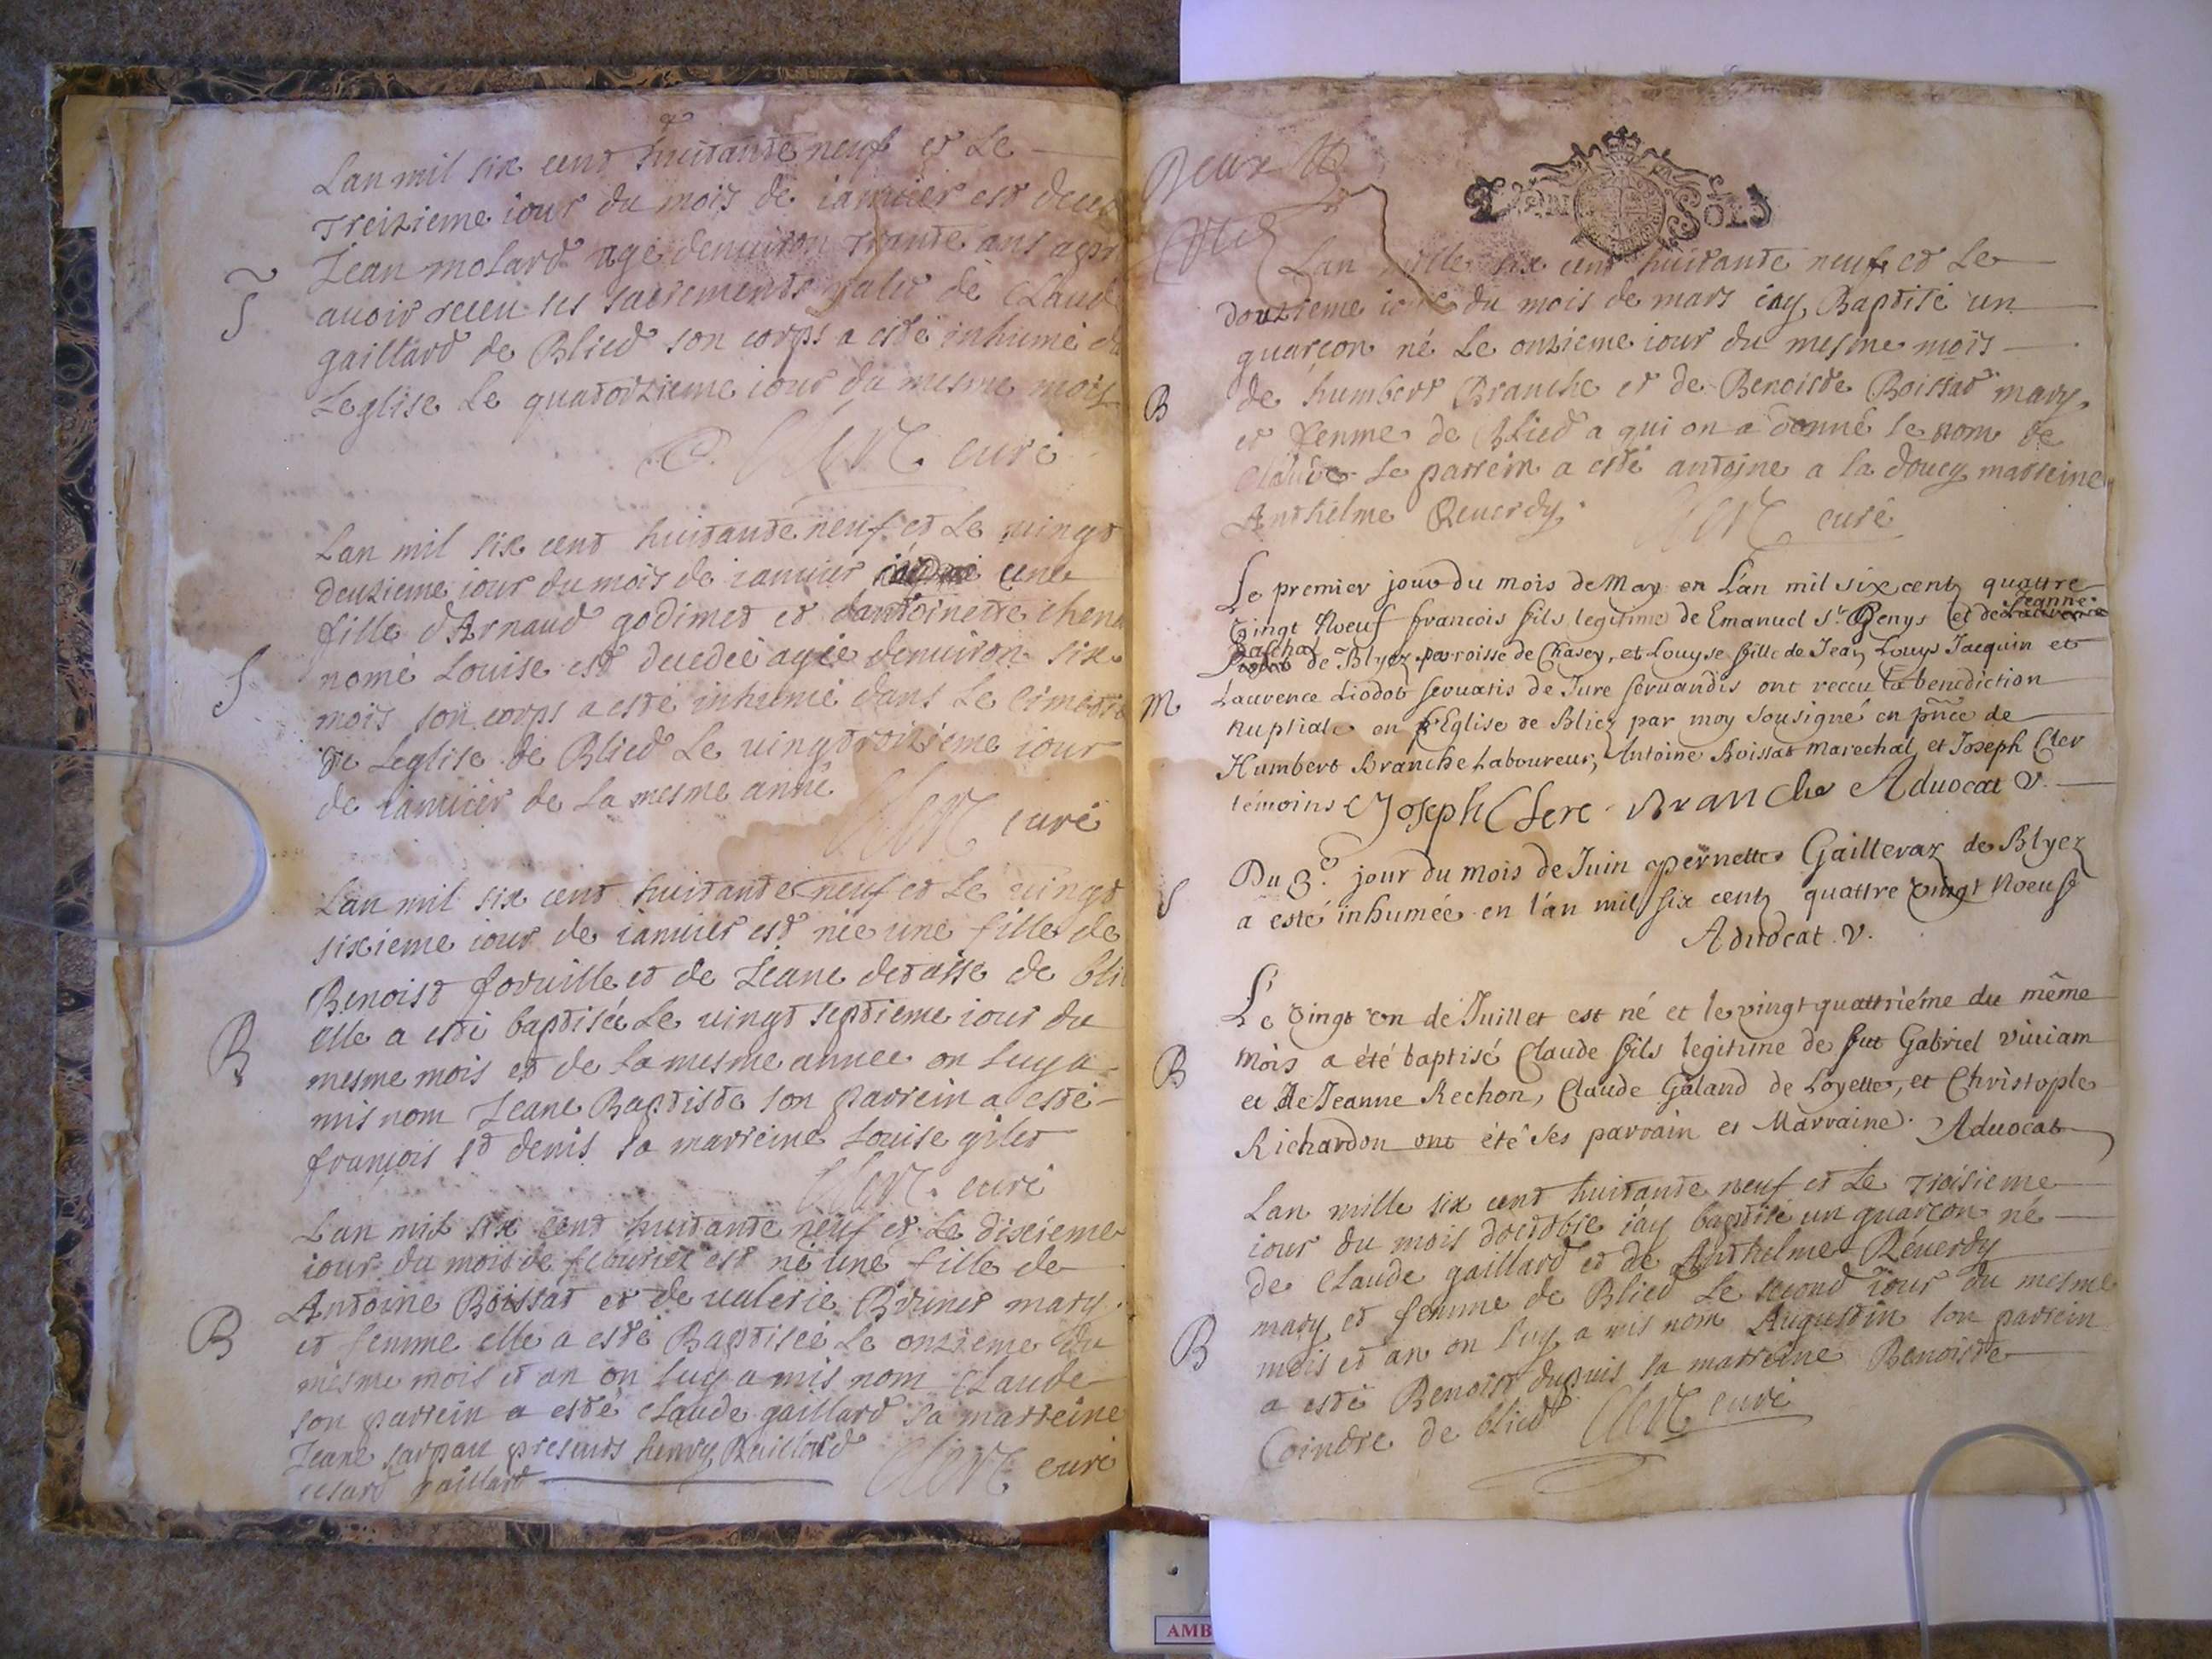 Lan mil six cent huitante neuf et Le
treizieme iour du mois de ianuier est deced
Jean molard agé denuiron trante ans apr
S
auoir receu ses sacrements valet de Claud
gaillard de Blied son corps a esté inhumé d
Leglise Le quatorzieme iour du mesme mois
curé
Lan mil six cent huitante neuf et Le uingt
deuzieme iour du mois de ianuier une
fille dArnaud godimet et dantoinette chena
S
nomé Louise est decedée agée denuiron six
mois son corps a esté inhumé dans Le cimetie
de Leglise de Blied Le uingtroizieme iour
de ianuier de La mesme anné
Clerc curé
Lan mil six cent huitante neuf et Le uingt
sixieme iour de ianuier est née une fille de
Benoist foruille et de Jeane detasse de bli
B
elle a esté baptisée Le uingt septieme iour du
mesme mois et de La mesme annee on Luy a
mis nom Jeane Baptiste son parrein a esté
françois st denis sa marreine Louise gilet
Clerc curé
Lan mil six cent huitante neuf et Le dixieme
iour du mois de feburier est né une fille de
Antoine Boissat et de ualerie Brunet mary
B
et femme elle a esté Baptisée Le onzieme du
mesme mois et an on Luy a mis nom Claude
son parrein a esté Claude gaillard sa marreine
Jeane sarpau presents henry
gaillard Clerc curé
Deux
SOLS
Lan mille six cent huitante neuf et Le
douzieme iour du mois de mars iay Baptisé un
guarçon né Le onzieme iour du mesme mois
B
de humbert Branche et de Benoiste Boissat mary
et femme de Blied a qui on a donné le nom de
Claude Le parrein a esté antoine a la doucy marreine
Anthelme Reuerdy. Clerc curé
Le premier jour du mois de May en L'an mil six cent quattre
Jeanne
vingt Noeuf francois fils legitime de Emanuel St Denys et de
Paschal
de Blyez parroisse de Chasey, et Louyse fille de Jean Louys Jacquin et
M
Laurence Liodot seruatis de Jure seruandis ont receu la benediction
Nuptiale en l'Eglise de Bliez par moy sousigné en pñce de
Humbert Branche Laboureur, Antoine Boissat Marechal, et Joseph Cler
témoins Joseph Clerc Branche Aduocat V.
Du 3e jour du mois de Juin pernette Gailleraz de Blyez
S
a esté inhumée en l'an mil six cent quattre vingt Noeuf
Aduocat. V.
Le vingt en de Juillet est né et le vingt quattriéme du même
B
Mois a été baptisé Claude fils legitime de fut Gabriel viuiam
et de Jeanne Rechon, Claude Galand de Loyette, et Christople
Richardon ont été ses parrain et Marraine. Aduocat
Lan mille six cent huitante neuf et Le troisieme
iour du mois doctobre iay baptisé un guarçon né
de Claude gaillard et de Anthelme Reuerdy
mary et femme de Blied Le second iour du mesme
B
mois et an on Luy a mis nom Augustin son parrein
a esté Benoist dupuis sa marreine Benoiste
Coindre de blied Clerc curé
AMB